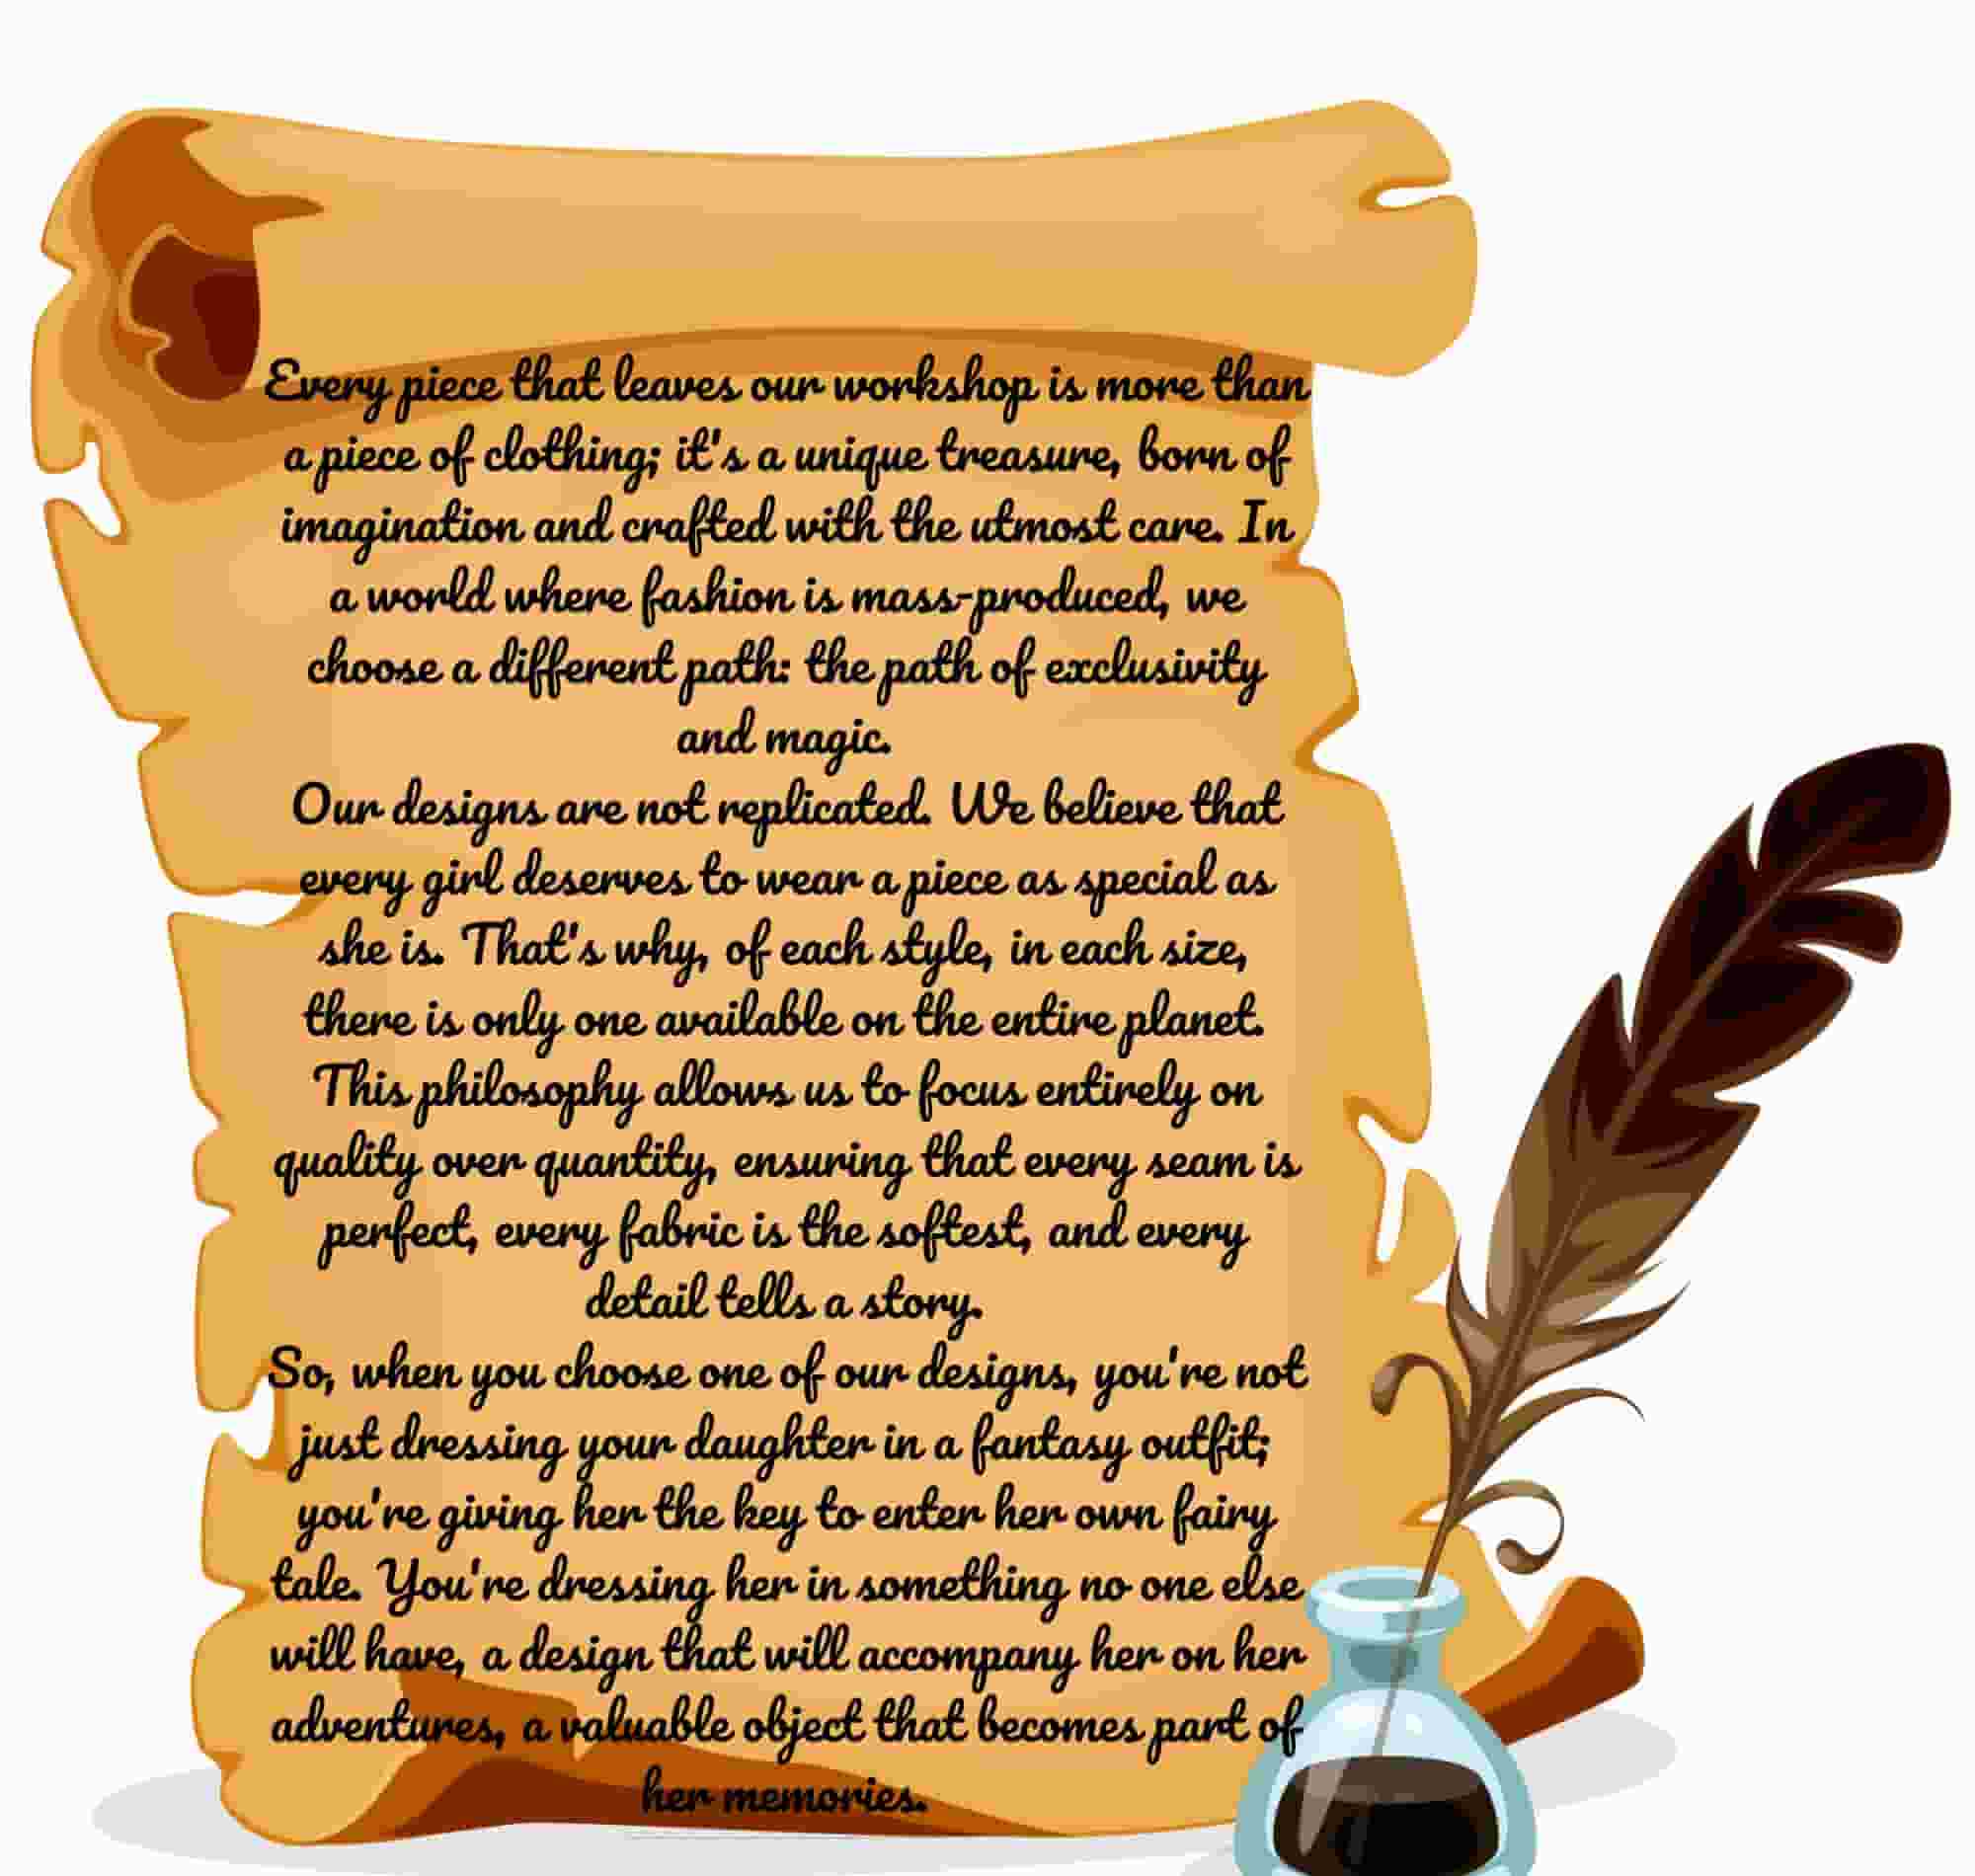 Every piece that leaves our workshop is more than
a piece of clothing; it's a unique treasure, born of
imagination and crafted with the utmost care. In
a world where fashion is mass-produced, we
choose a different path: the path of exclusivity
and magic.
Our designs are not replicated. We believe that
every girl deserves to wear a piece as special as
she is. That's why, of each style, in each size,
there is only one available on the entire planet.
This philosophy allows us to focus entirely on
quality over quantity, ensuring that every seam is
perfect, every fabric is the softest, and every
detail tells a story.
So, when you choose one of our designs, you're not
just dressing your daughter in a fantasy outfit;
you're giving her the key to enter her own fairy
tale. You're dressing her in something no one else
will have, a design that will accompany her on her
adventures, a valuable object that becomes part of
her memories.